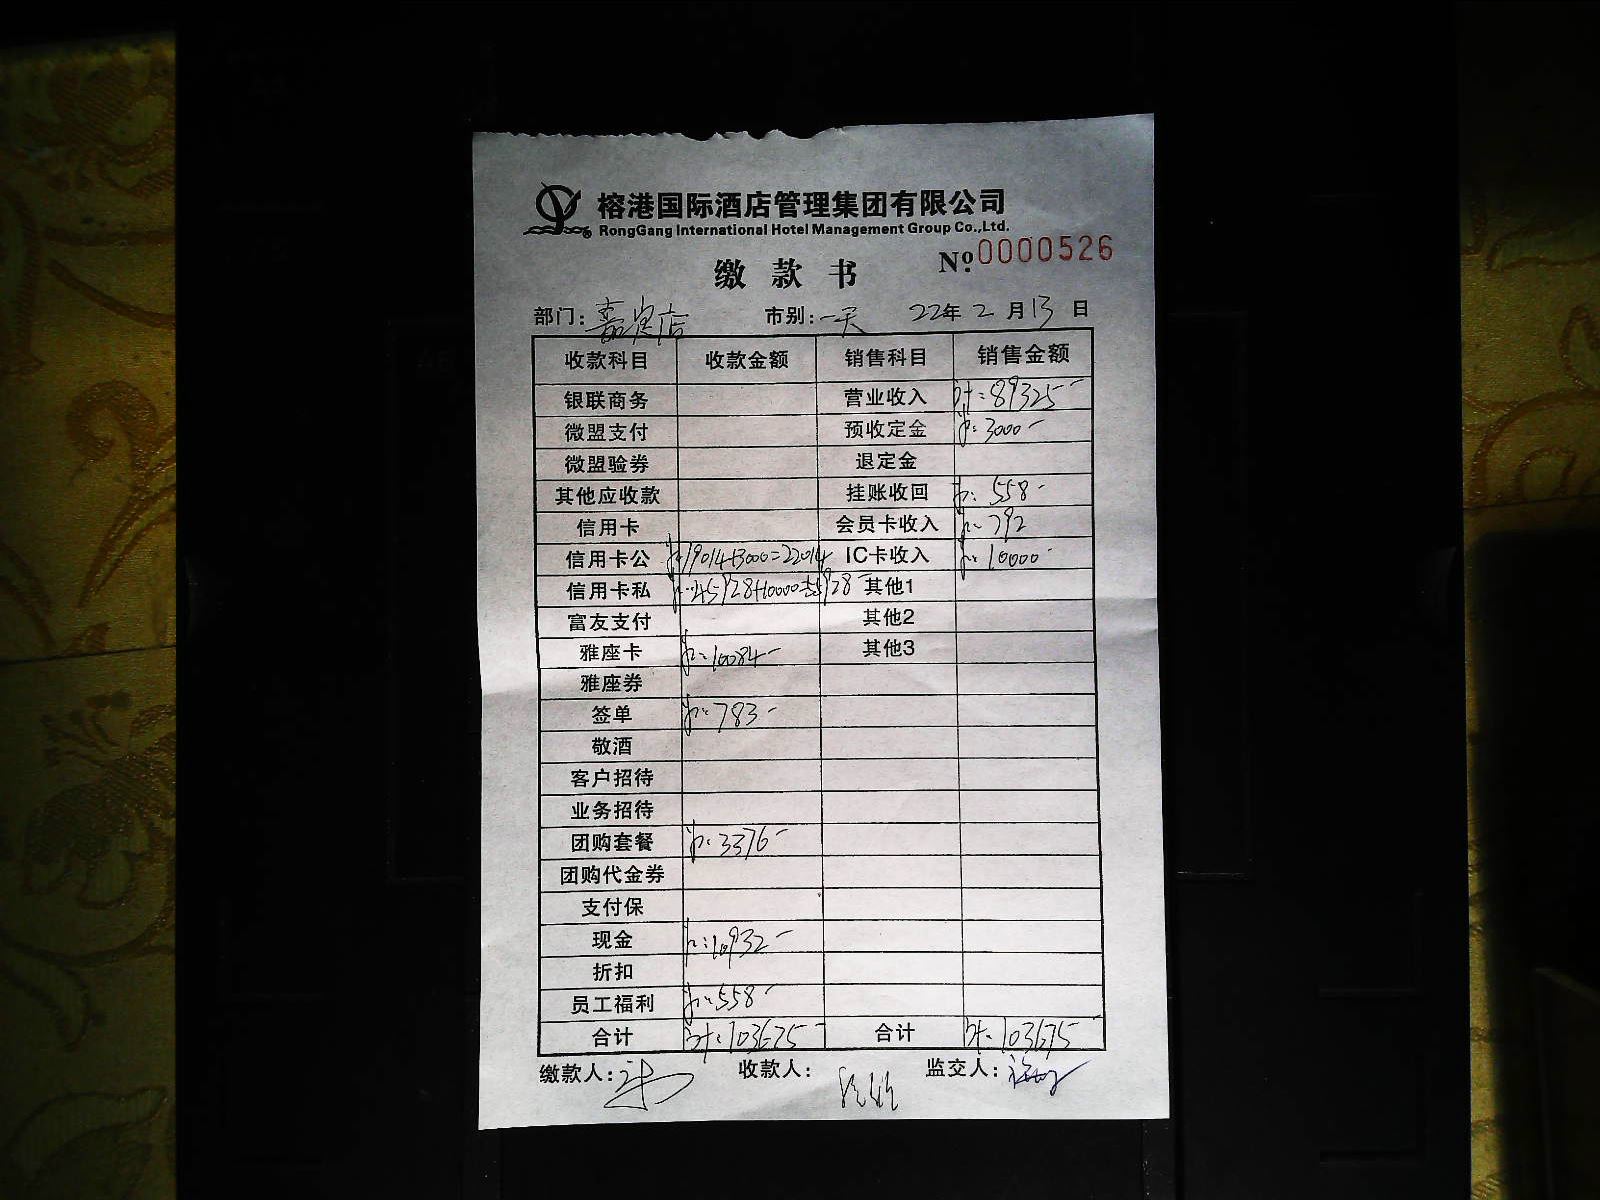 榕港国际酒店管理集团有限公司
RongGang International Hotel Management Group Co.,Ltd.
缴款书 №0000526
部门：嘉宾店 市别：一天 22年2月13日
收款科目 收款金额 销售科目 销售金额
银联商务 营业收入 计：89325-
微盟支付 预收定金 计：3000-
微盟验券 退定金
其他应收款 挂账收回 计：558-
信用卡 会员卡收入 计：792
信用卡公 计：19014+3000=22014 IC卡收入 计：10000-
信用卡私 计：45928+10000=55928- 其他1
富友支付 其他2
雅座卡 计：10084- 其他3
雅座券
签单 计：783-
敬酒
客户招待
业务招待
团购套餐 计：3376-
团购代金券
支付保
现金 计：10932-
折扣
员工福利 计：558-
合计 计：103675- 合计 计：103675
缴款人： 收款人： 监交人：